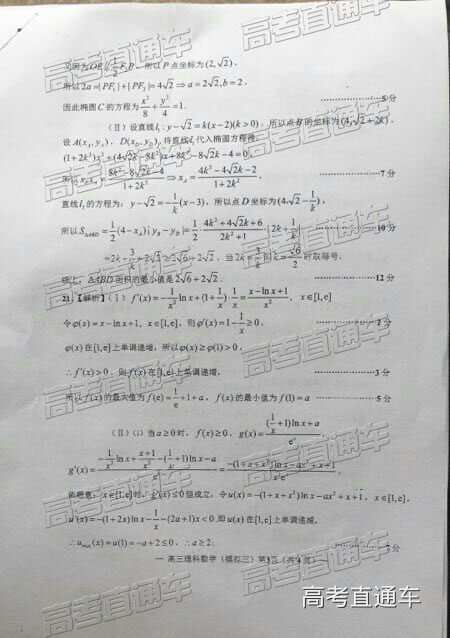 又因为OE∥½F₁B，所以P点坐标为(2,√2)，
所以2a=|PF₁|+|PF₂|=4√2⇒a=2√2,b=2．
因此椭圆C的方程为x²/8+y²/4=1． 5分
(Ⅱ) 设直线l₁:y-√2=k(x-2)(k>0)．所以点B的坐标为(4,√2+2k)．
设A(x_A,y_A)，D(x_D,y_D)，将直线l₁代入椭圆方程得：
(1+2k²)x²+(4√2k-8k²)x+8k²-8√2k-4=0．
=(8k²-8√2k-4)/(1+2k²)⇒x_A=(4k²-4√2k-2)/(1+2k²)， 7分
直线l₂的方程为：y-√2=-1/k(x-3)，所以点D坐标为(4,√2-1/k)，
=½(4-x_A)|y_B-y_D|=½·(4k²+4√2k+6)/(2k²+1)·|2k+1/k| 10分
=2k+3/k+2√2≥2√6+2√2．当2k=3/k即k=√6/2时取等号．
综上，△ABD面积的最小值是2√6+2√2． 12分
21.【解析】(Ⅰ) f'(x)=-1/x² ln x+(1+1/x)·1/x=(x-ln x+1)/x²，x∈[1,e]
令φ(x)=x-ln x+1，x∈[1,e]，则φ'(x)=1-1/x≥0． 2分
φ(x)在[1,e]上单调递增，所以φ(x)≥φ(1)>0，
∴f'(x)>0．则f(x)在[1,e]上单调递增， 3分
所以f(x)的最大值为f(e)=1/e+1+a，f(x)的最小值为f(1)=a 5分
(Ⅱ) (i) 当a≥0时，f(x)≥0，g(x)=((1/x+1)ln x+a)/eˣ
g'(x)=(-1/x² ln x+(x+1)/x²-(1/x+1)ln x-a)/eˣ=(-(1+x+x²)ln x-ax²+x+1)/x²eˣ，
依题意：x∈[1,e]时，g'(x)≤0恒成立，令u(x)=-(1+x+x²)ln x-ax²+x+1，x∈[1,e]，
u'(x)=-(1+2x)ln x-1/x-(2a+1)x<0,即u(x)在[1,e]上单调递减，
∴u_max(x)=u(1)=-a+2≤0，∴a≥2； 7分
— 高三理科数学（模拟三）第3页（共4页）—
高考直通车